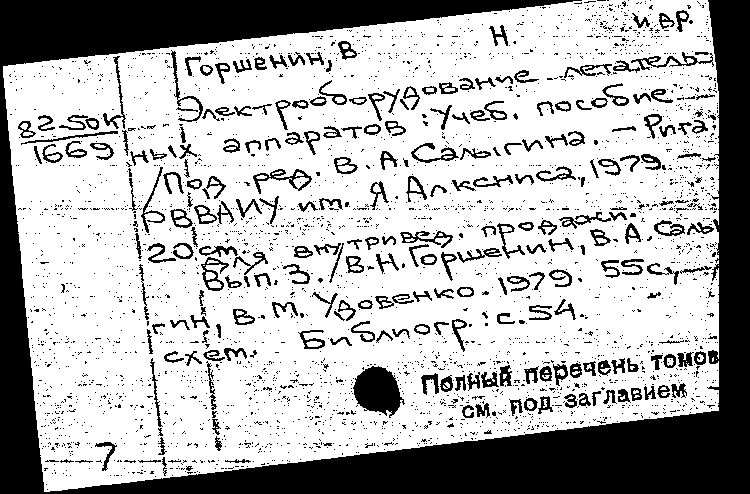 Горшенин, В Н. и др.
82-50к
1669
Электрооборудование летатель-
ных аппаратов : Учеб. пособие
/Под ред. В.А. Салыгина. — Рига:
РВВАИУ им. Я. Алксниса, 1979. —
20 см.
Для внутривед. продажи.
Вып. 3. /В.Н. Горшенин, В.А. Салы
гин, В.М. Удовенко. 1979. 55с., —
схем. Библиогр.: с.54.
Полный перечень томов
см. под заглавием
7